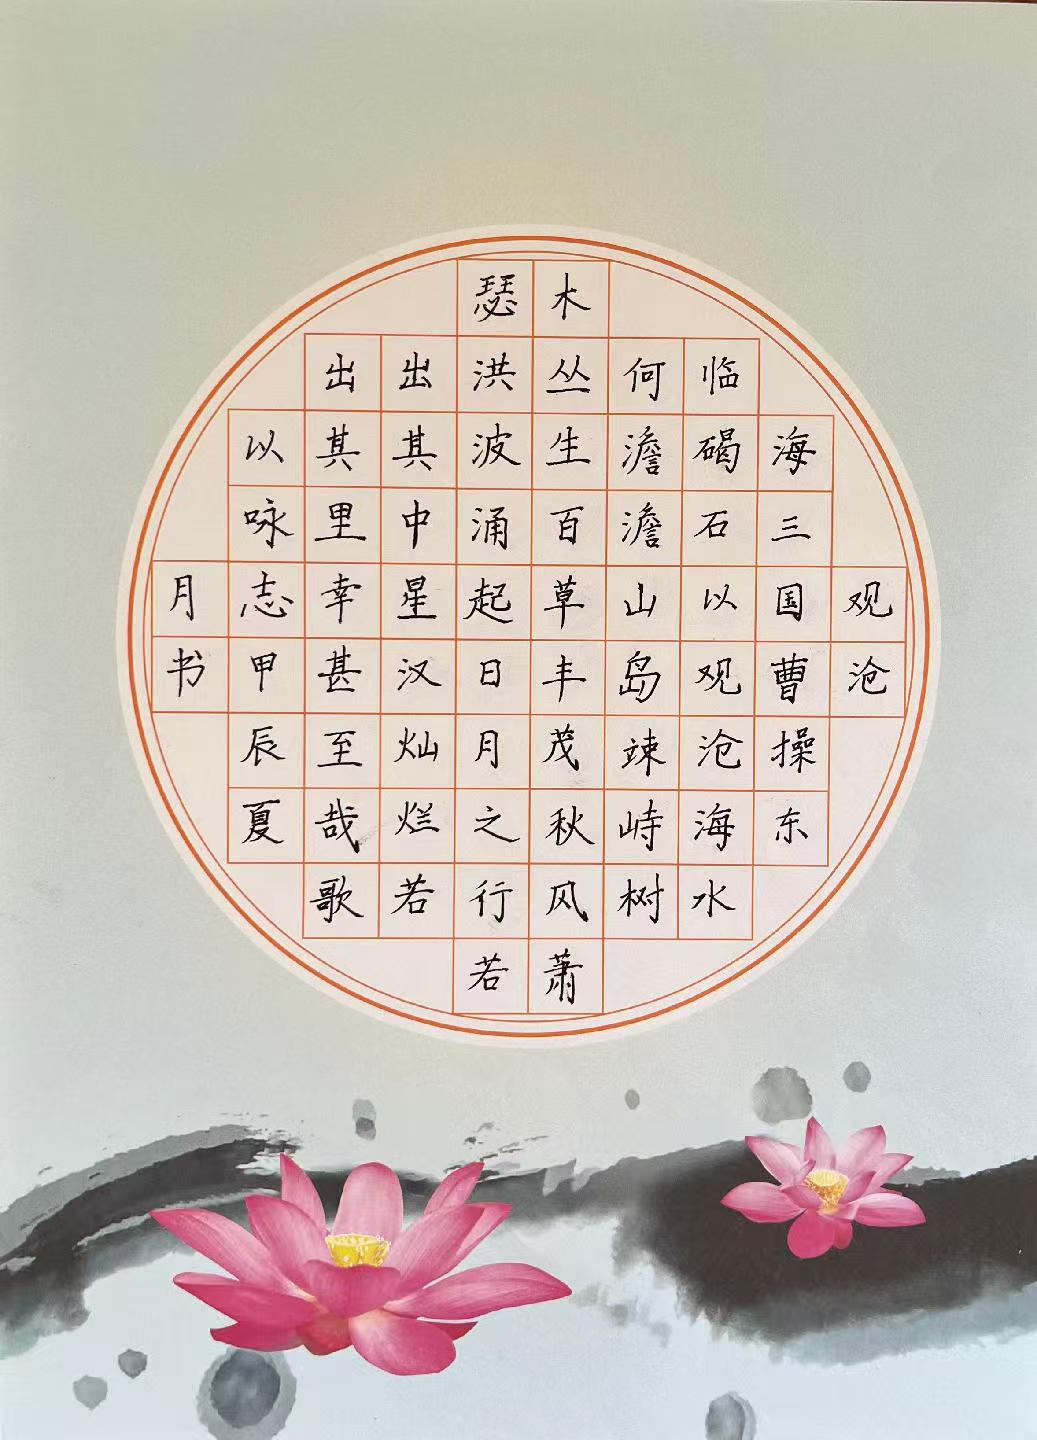 观沧
海三国曹操东
临碣石以观沧海水
何澹澹山岛竦峙树
木丛生百草丰茂秋风萧
瑟洪波涌起日月之行若
出其中星汉灿烂若
出其里幸甚至哉歌
以咏志甲辰夏
月书